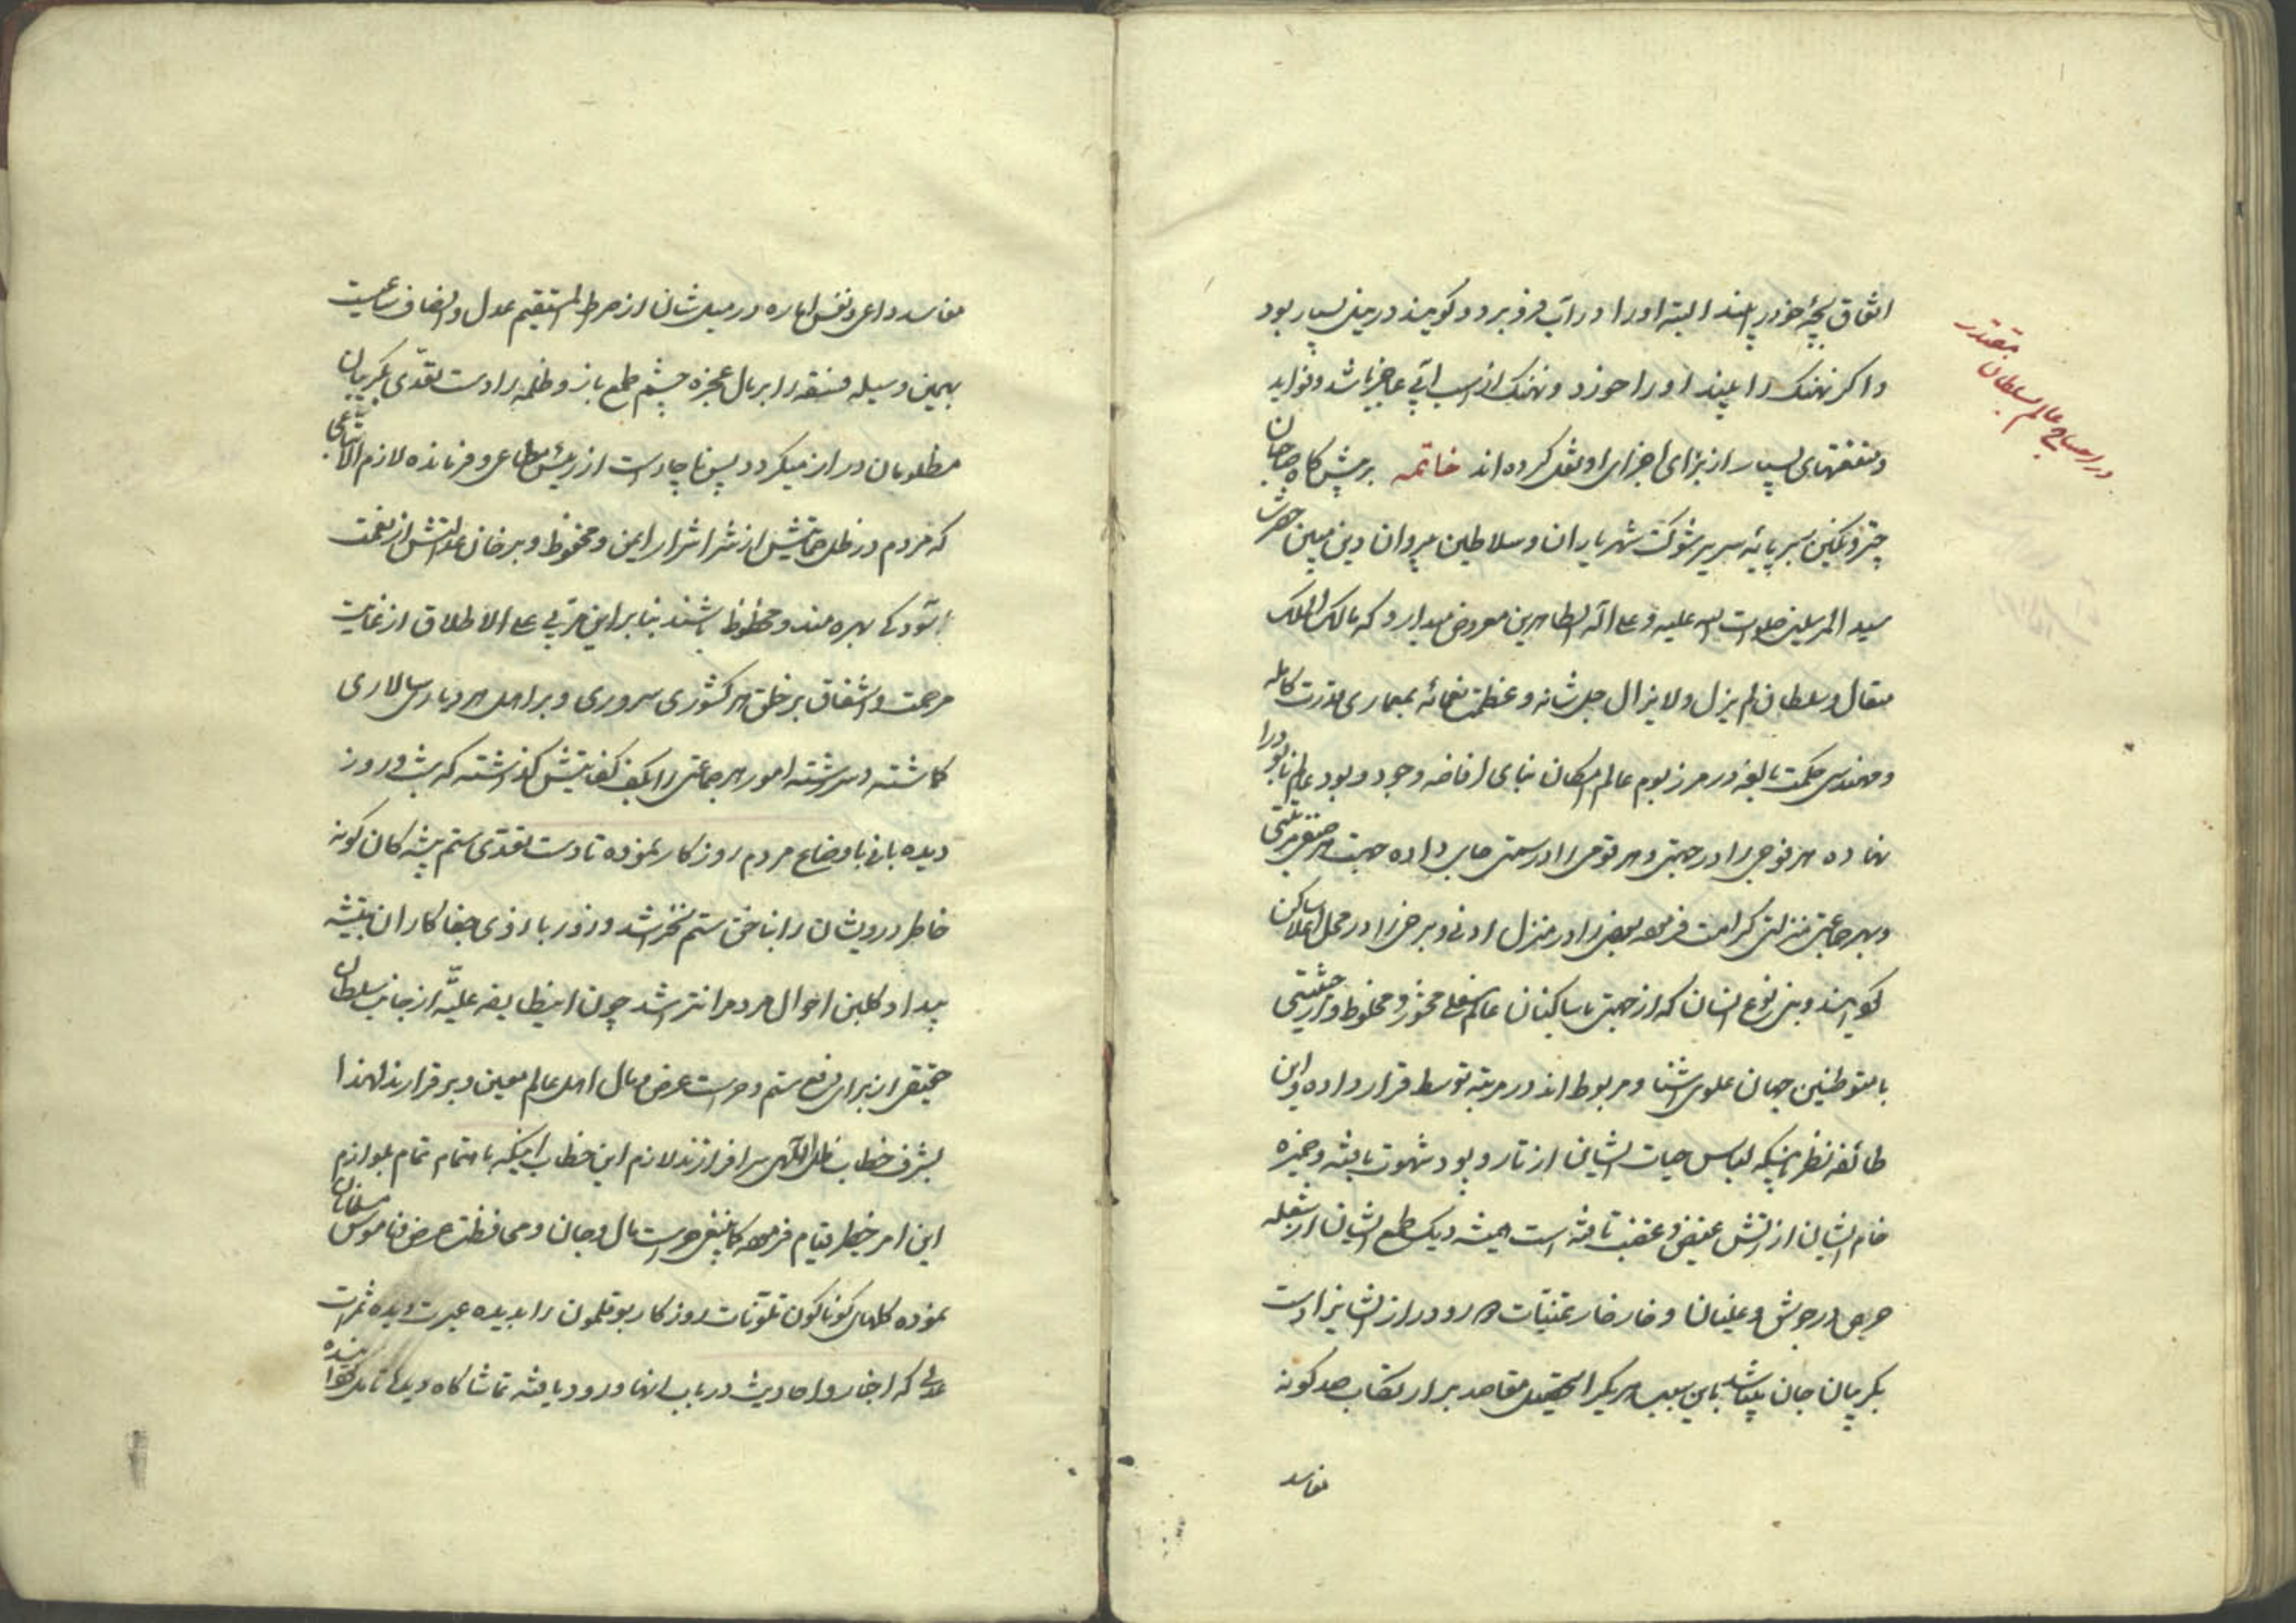 اتفاق بچهٔ خود را بیند البته او را در آب فرو برد و گویند در نیل بسیار بود
و اگر نهنگ را بیند او را خورد و نهنگ از اسب آبی عاجز باشد و نواید
و منفعتهای بسیار از برای اجزای او نقل کرده‌اند خاتمه بر پیشگاه صاحبان
در احتیاج عالم بسلطان مقتدر
چتر و نگین بر پایهٔ سریر شوکت شهریاران و سلاطین پیروان دین مبین حضرت
سید المرسلین صلوات الله علیه و علی آله الطاهرین معروض میدارد که مالک الملک
متعال و سلطان لم یزل و لا یزال جل شانه و عظمت نعمائه بمعماری قدرت کامله
و مهندسی حکمت بالغه در مرز بوم عالم امکان بنای افاضه وجود و بود عالم نابود را
نهاده هر فوجی را در جهتی و هر قومی را در سمتی جای داده جهت هر صنفی مرتبتی
و بهر جماعتی منزلتی کرامت فرموده بعضی را در منزل ادنی و برخی را در محل اعلا ساکن
گویند و بنی نوع انسان که از جهتی با ساکنان عالم سفلی و مخلوط و از حیثیتی
با متوطنین جهان علوی آشنا و مربوط اند در مرتبه توسط قرار داده و این
طائفه نظر باینکه لباس حیات ایشان از تار و پود شهوت بافته و خمیره
خام ایشان از آتش غیض و غضب تافته است همیشه دیک طمع ایشان از شعله
حرص در جوش و غلیان و خار خار تمنیات دور و دراز ایشانرا دست
بگریبان جان میباشد باین سبب هر یک را تحصیل مقاصد بر ارتکاب صد گونه
مفاسد
مفاسد داعی و نفس اماره در میل شان از صراط المستقیم عدل و انصاف ساعیست
بهمین وسیله فسقه را بر مال عجزه چشم طمع باز و ظلمه را دست تعدی بگریبان
مظلومان دراز میگردد پس ناچار است از رئیس مطاعی و فرمانده لازم الاتباعی
که مردم در ظل حمایتش از شر اشرار ایمن و محفوظ و بر خوان عدالتش از نعمت
آسودگی بهره‌مند و محظوظ باشند بنابراین مربی علی الاطلاق از غایت
مرحمت و اشفاق بر خلق هر کشوری سروری و بر اهل هر دیاری سالاری
گماشته و سررشته امور هر جماعتی را بکف کفایتش گذاشته که شب و روز
دیده‌بانی باوضاع مردم روزگار نموده تا دست تعدی ستم پیشه‌گان گونه
خاطر درویشان را بناخن ستم نخراشد و زور بازوی جفا کاران بتیشه
بیداد گلبن احوال مردم را نتراشد چون این طایفه علیّه از جانب سلطان
حقیقی از برای رفع ستم و حراست عرض و مال اهل عالم معین و برقرارند لهذا
بشرف خطاب ظل اللهی سرافرازند لازم این خطاب اینکه باهتمام تمام بلوازم
این امر خطیر قیام فرموده کما ینبغی حراست مال و جان و محافظت عرض و ناموس مسلمانان
نموده گلهای گوناگون تلونات روزگار بوقلمون را بدیده عبرت دیده ثمرات
عدلی که اخبار و احادیث در باب آنها ورود یافته تماشاگاه دیده تامل خواننده